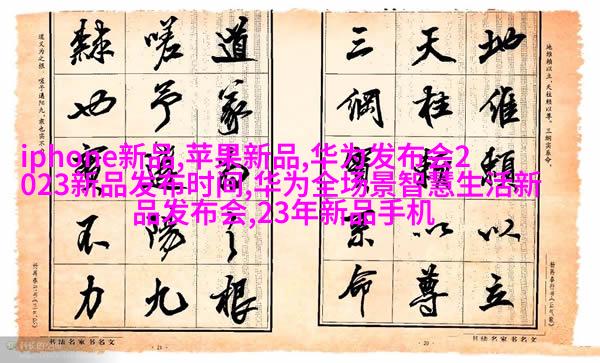 iphone新品,苹果新品,华为发布会2
023新品发布时间,华为全场景智慧生活新
品发布会,23年新品手机
地維賴以立
天柱賴以尊
三綱實系命
道義為之根
嗟予遘陽九
隸也實不力
地维赖以立,天柱赖以尊。三纲实系命,
道义为之根。嗟予遘阳九,隶也实不力。
20
21